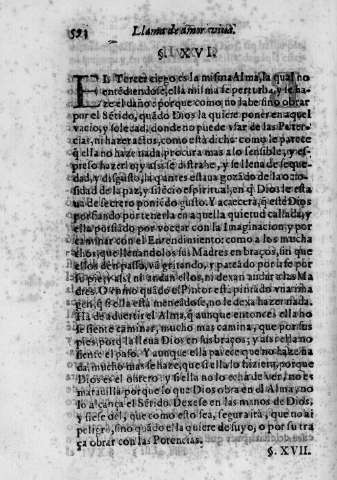 593 Llama de amor viua.
§. XVI.
EL Tercer ciego es la misma Alma, la qual no
entēdiendose, ella misma se perturba, y se ha-
ze el daño: porque como no sabe sino obrar
por el Sētido, quādo Dios la quiere poner en aquel
vacio, y soledad, donde no puede vsar de las Poten-
cias, ni hazer actos, como està dicho como le parece
q̄ ella no haze nada, procura mas a lo sensible, y es-
preso hazerlo, y assi se distrahe, y se llena de seque-
dad, y disgusto, la q̄ antes estaua gozādo de la ocio-
sidad de la paz, y silēcio espiritual, en q̄ Dios le esta
ua de secreto poniēdo gusto. Y acaecerà, q̄ estè Dios
porfiando por tenerla en aquella quietud callada, y
ella porfiādo por vocear con la Imaginacion, y por
caminar con el Entendimiento: como a los mucha
chos, que lleuandolos sus Madres en braços, sin que
ellos den passo, vā gritando, y pateādo por ir se por
su pie; y assi, ni andan ellos, ni dexan andar a las Ma
dres. O como quādo el Pintor està pintādo vna ima
gen, q̄ si ella està meneādose, no le dexa hazer nada.
Ha de advertir el Alma, q̄ aunque entonces ella no
se siente caminar, mucho mas camina, que por sus
pies, porq̄ la lleua Dios en sus braços; y assi ella no
siente el passo. Y aunque ella parece que no haze na
da, mucho mas se haze, que si ella lo hiziera, porque
Dios es el obrero: y si ella no lo echa de ver, no es
marauilla, porque lo que Dios obra en el Alma, no
lo alcança el Sētido. Dexese en las manos de Dios,
y fiese del, que como esto sea, segura irà, que no ai
peligro, sino quādo ella quiere de suyo, o por su tra
ça obrar con las Potencias.
§. XVII.